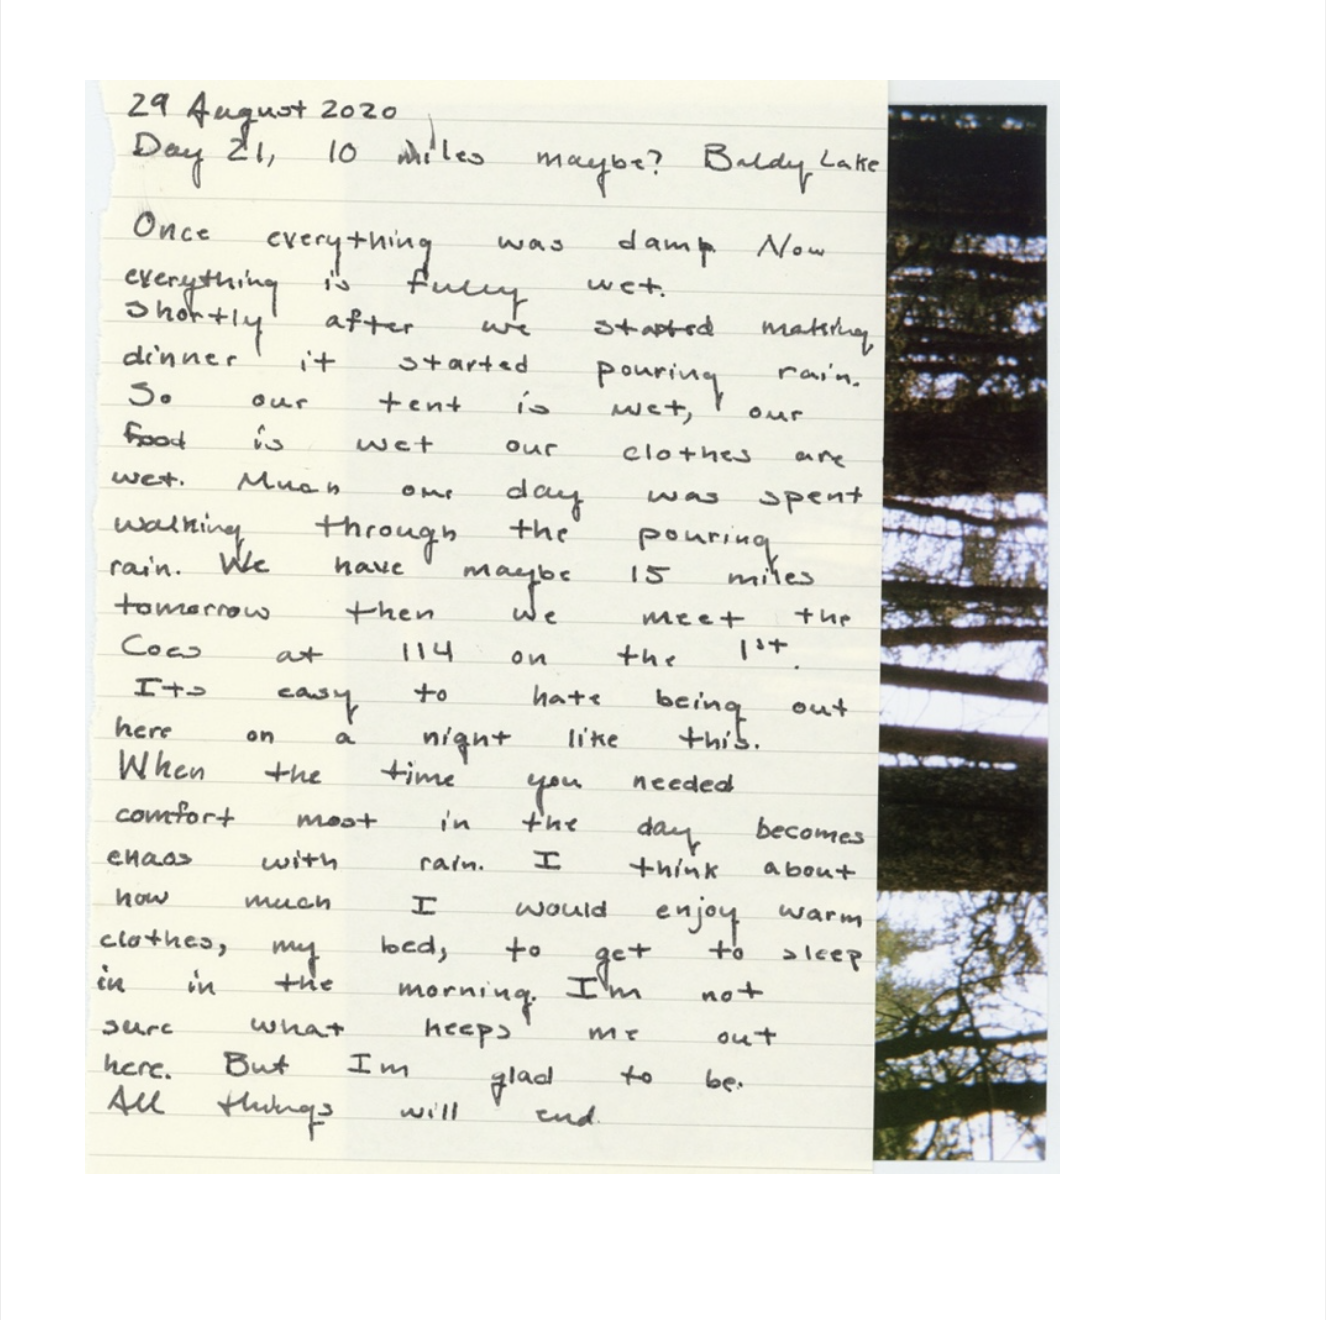 29 August 2020
Day 21, 10 miles maybe? Baldy Lake
Once everything was damp Now
everything is fully wet.
Shortly after we started making
dinner it started pouring rain.
So our tent is wet, our
food is wet our clothes are
wet. Much our day was spent
walking through the pouring
rain. We have maybe 15 miles
tomorrow then we meet the
Coes at 114 on the 1st.
Its easy to hate being out
here on a night like this.
When the time you needed
comfort most in the day becomes
chaos with rain. I think about
how much I would enjoy warm
clothes, my bed, to get to sleep
in in the morning. I'm not
sure what keeps me out
here. But Im glad to be.
All things will end.